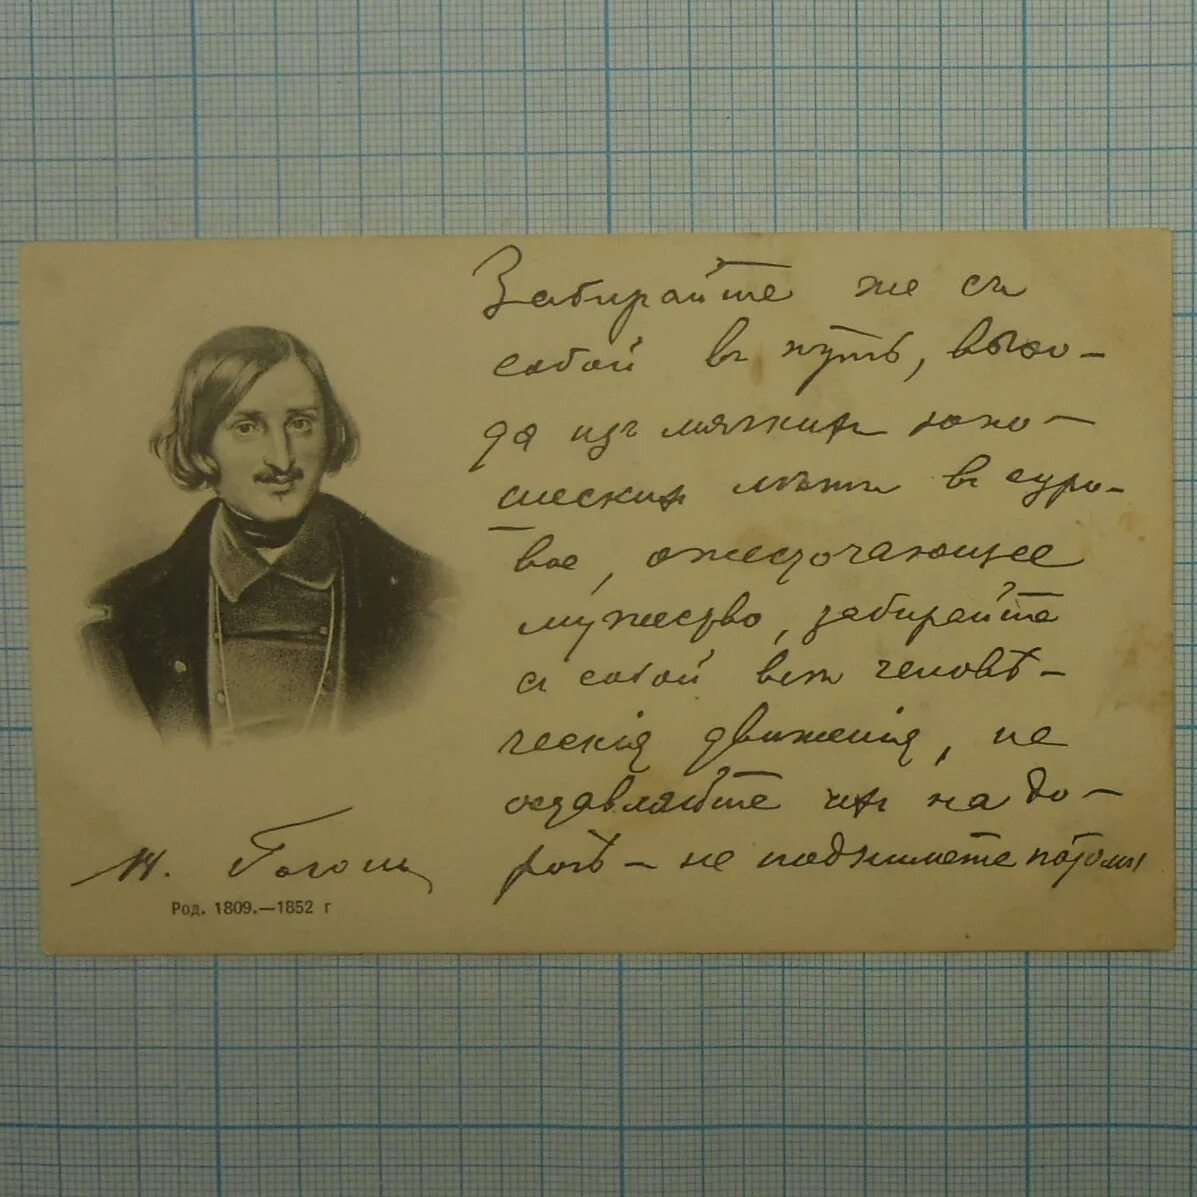 Забирайте же съ
собой въ путь, выхо-
дя изъ мягкихъ юно-
шескихъ лѣтъ въ суро-
вое, ожесточающее
мужество, забирайте
съ собой всѣ человѣ-
ческія движенія, не
оставляйте ихъ на до-
рогѣ – не подымете потомъ
Н. Гоголь
Род. 1809.—1852 г